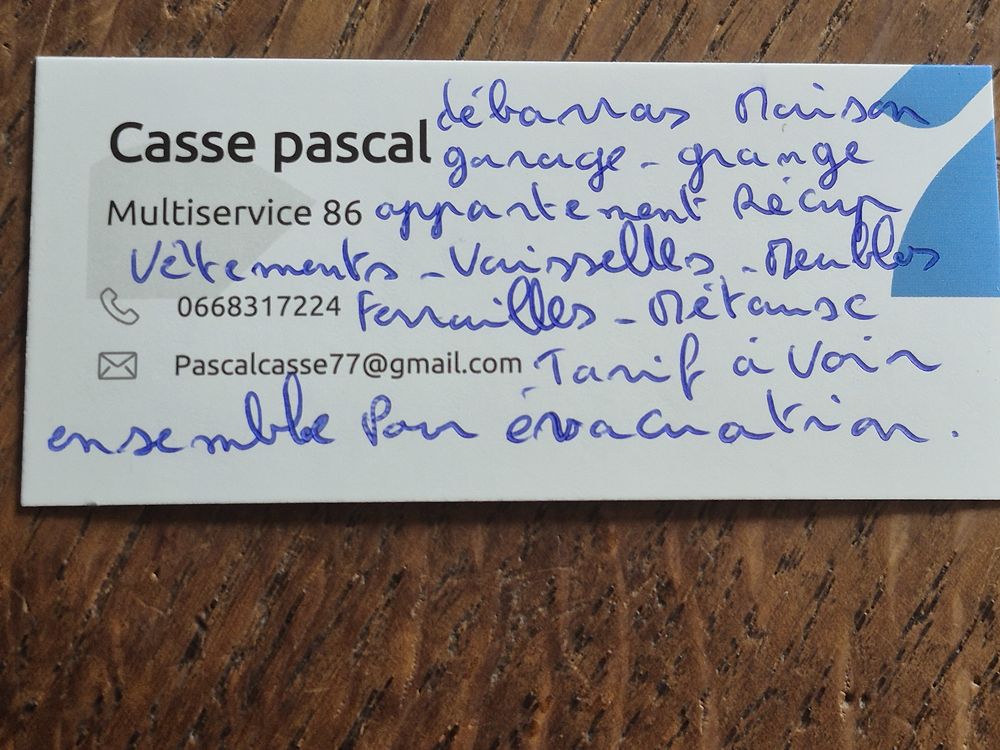 débarras Maison
Casse pascal garage - grange
Multiservice 86 appartement Récup
Vêtements - Vaisselles - Meubles
0668317224 Ferrailles - Métause
Pascalcasse77@gmail.com Tarif à Voir
ensemble Pour évacuation.